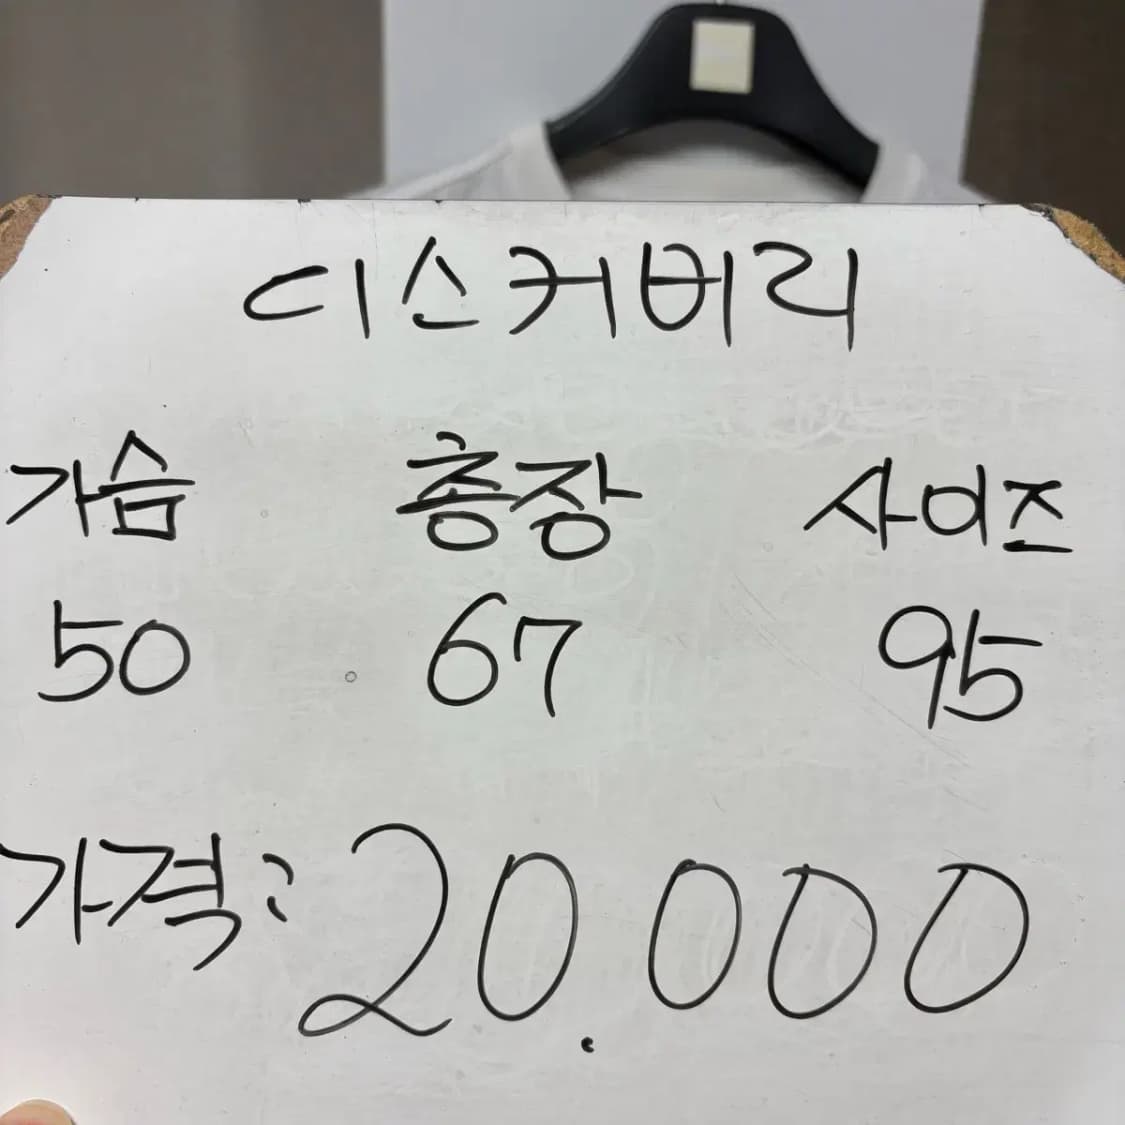 디스커버리
가슴 총장 사이즈
50 67 95
가격: 20.000